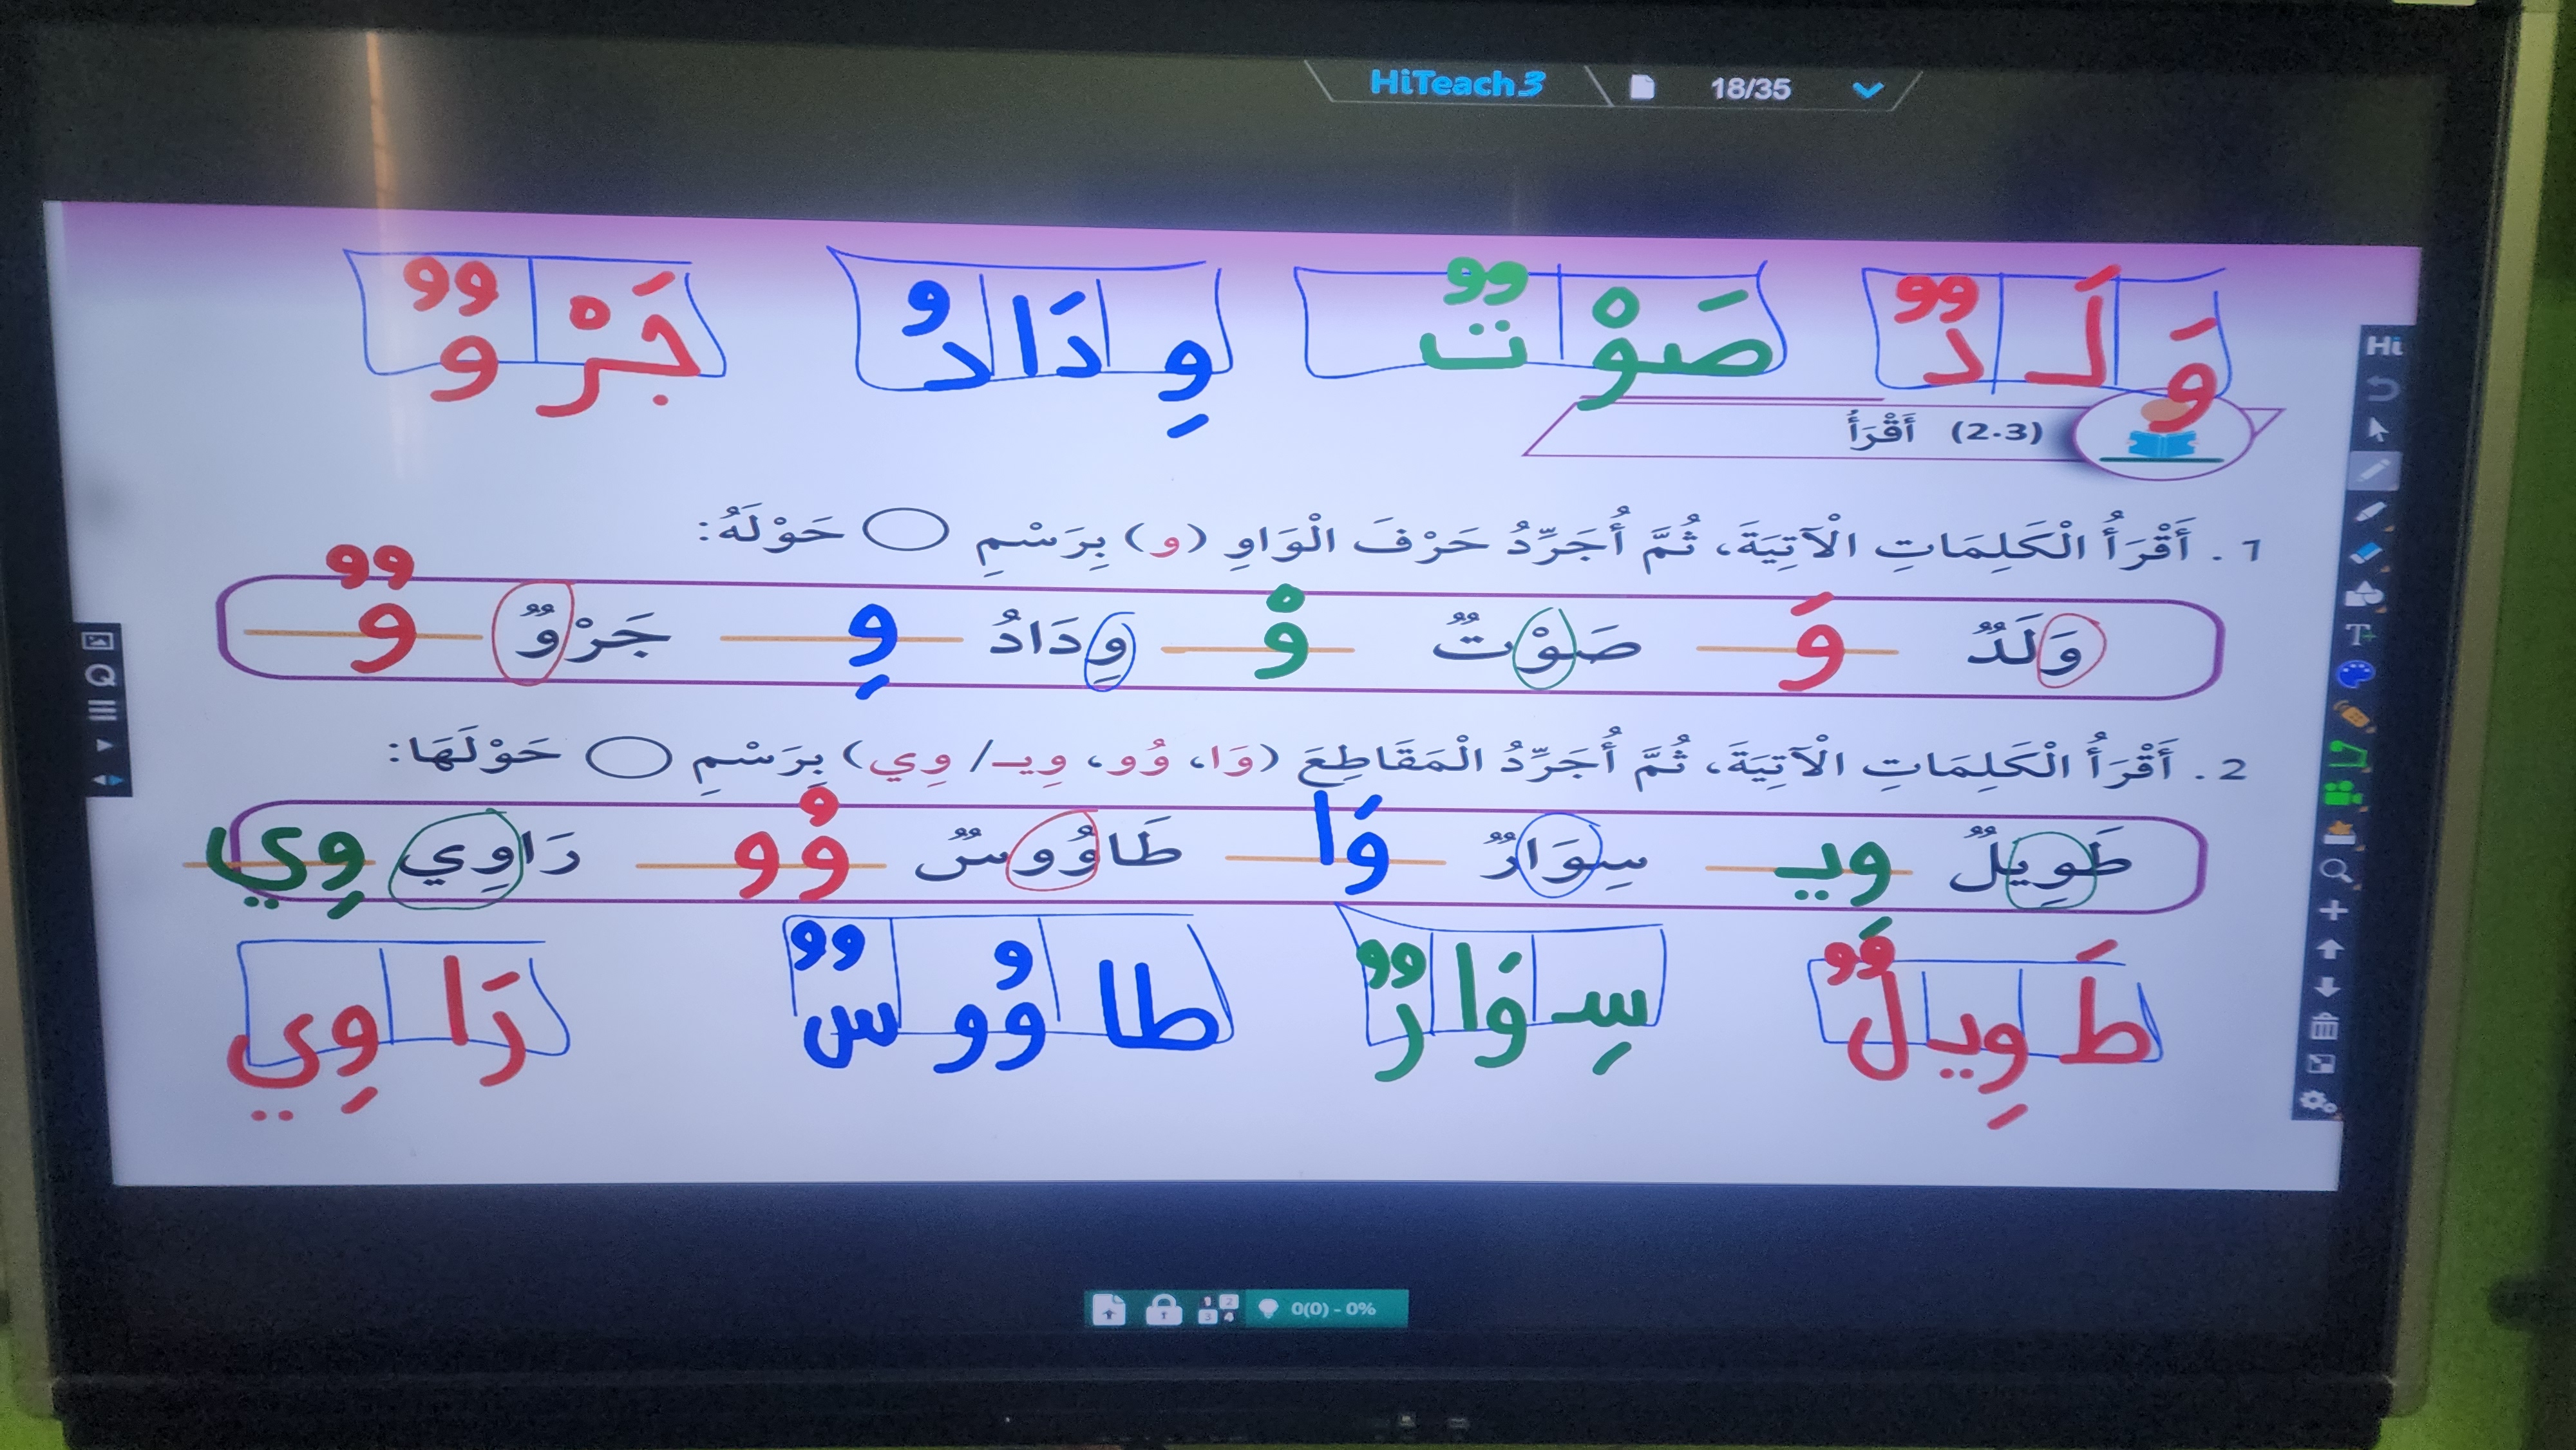 HiTeach3 18/35
وَ لَـ دٌ صَوْ تٌ وِ دَا دُ جَرْ وٌ
Hi
(2-3) أَقْرَأُ
1. أَقْرَأُ الْكَلِمَاتِ الْآتِيَةَ، ثُمَّ أُجَرِّدُ حَرْفَ الْوَاوِ (و) بِرَسْمِ ◯ حَوْلَهُ:
وَلَدٌ وَ صَوْتٌ وْ وِدَادُ وِ جَرْوٌ وٌ
2. أَقْرَأُ الْكَلِمَاتِ الْآتِيَةَ، ثُمَّ أُجَرِّدُ الْمَقَاطِعَ (وَا، وُو، وِيـ/ وِي) بِرَسْمِ ◯ حَوْلَهَا:
طَوِيلٌ وِيـ سِوَارٌ وَا طَاوُوسٌ وُو رَاوِي وِي
طَ وِيـ لٌ سِـ وَا رٌ طا وُو سٌ رَا وِي
0(0) - 0%